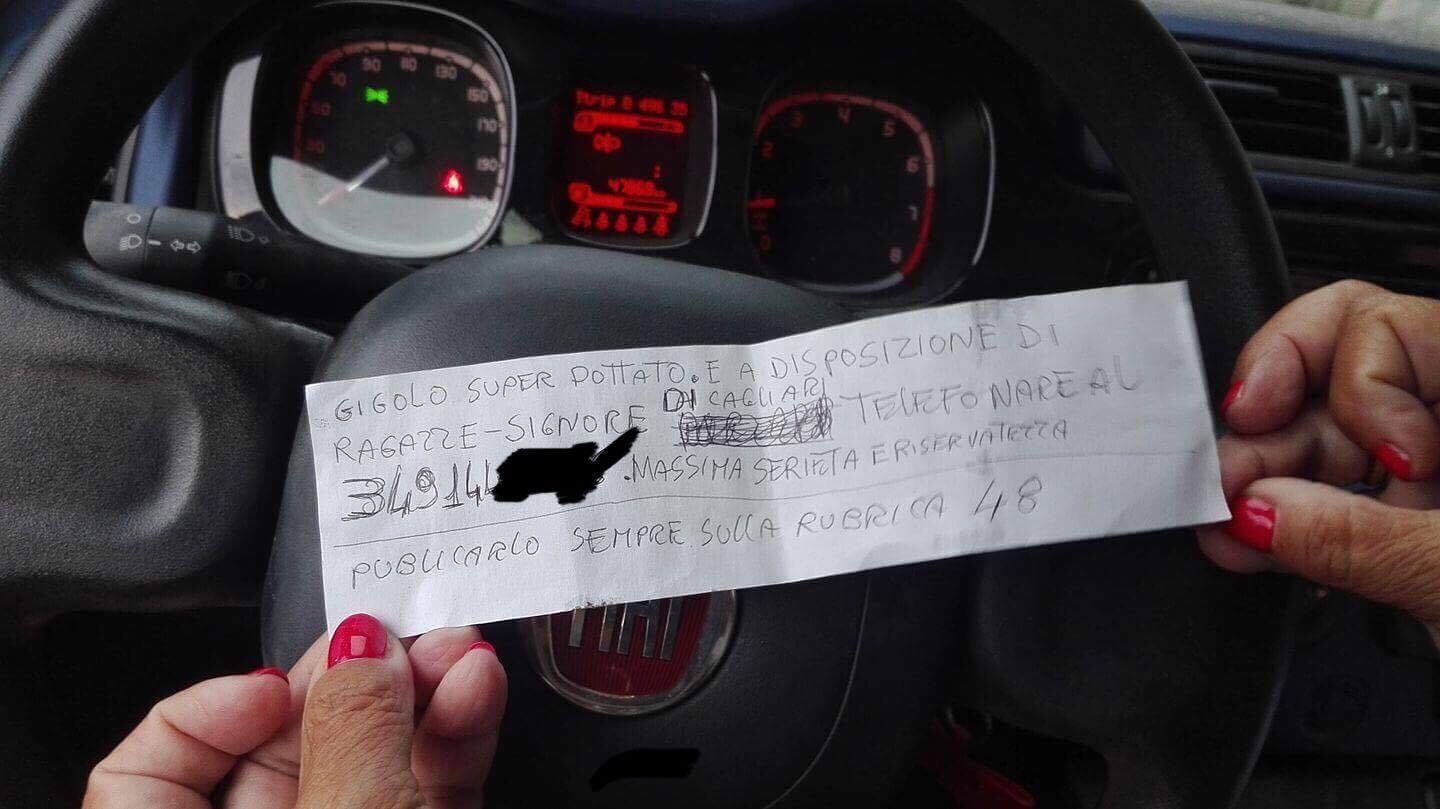 30 50 70 90 80 130 150 170 190
Trip B 496.39
47868
0 2 3 4 5 6 7 8
GIGOLO SUPER DOTTATO. E A DISPOSIZIONE DI
RAGAZZE-SIGNORE DI CAGLIARI TELEFONARE AL
349144 . MASSIMA SERIETA E RISERVATEZZA
PUBLICARLO SEMPRE SULLA RUBRICA 48
FIAT